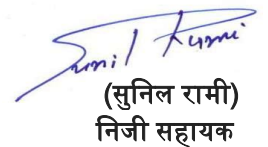 Sunil Rami
(सुनिल रामी)
निजी सहायक